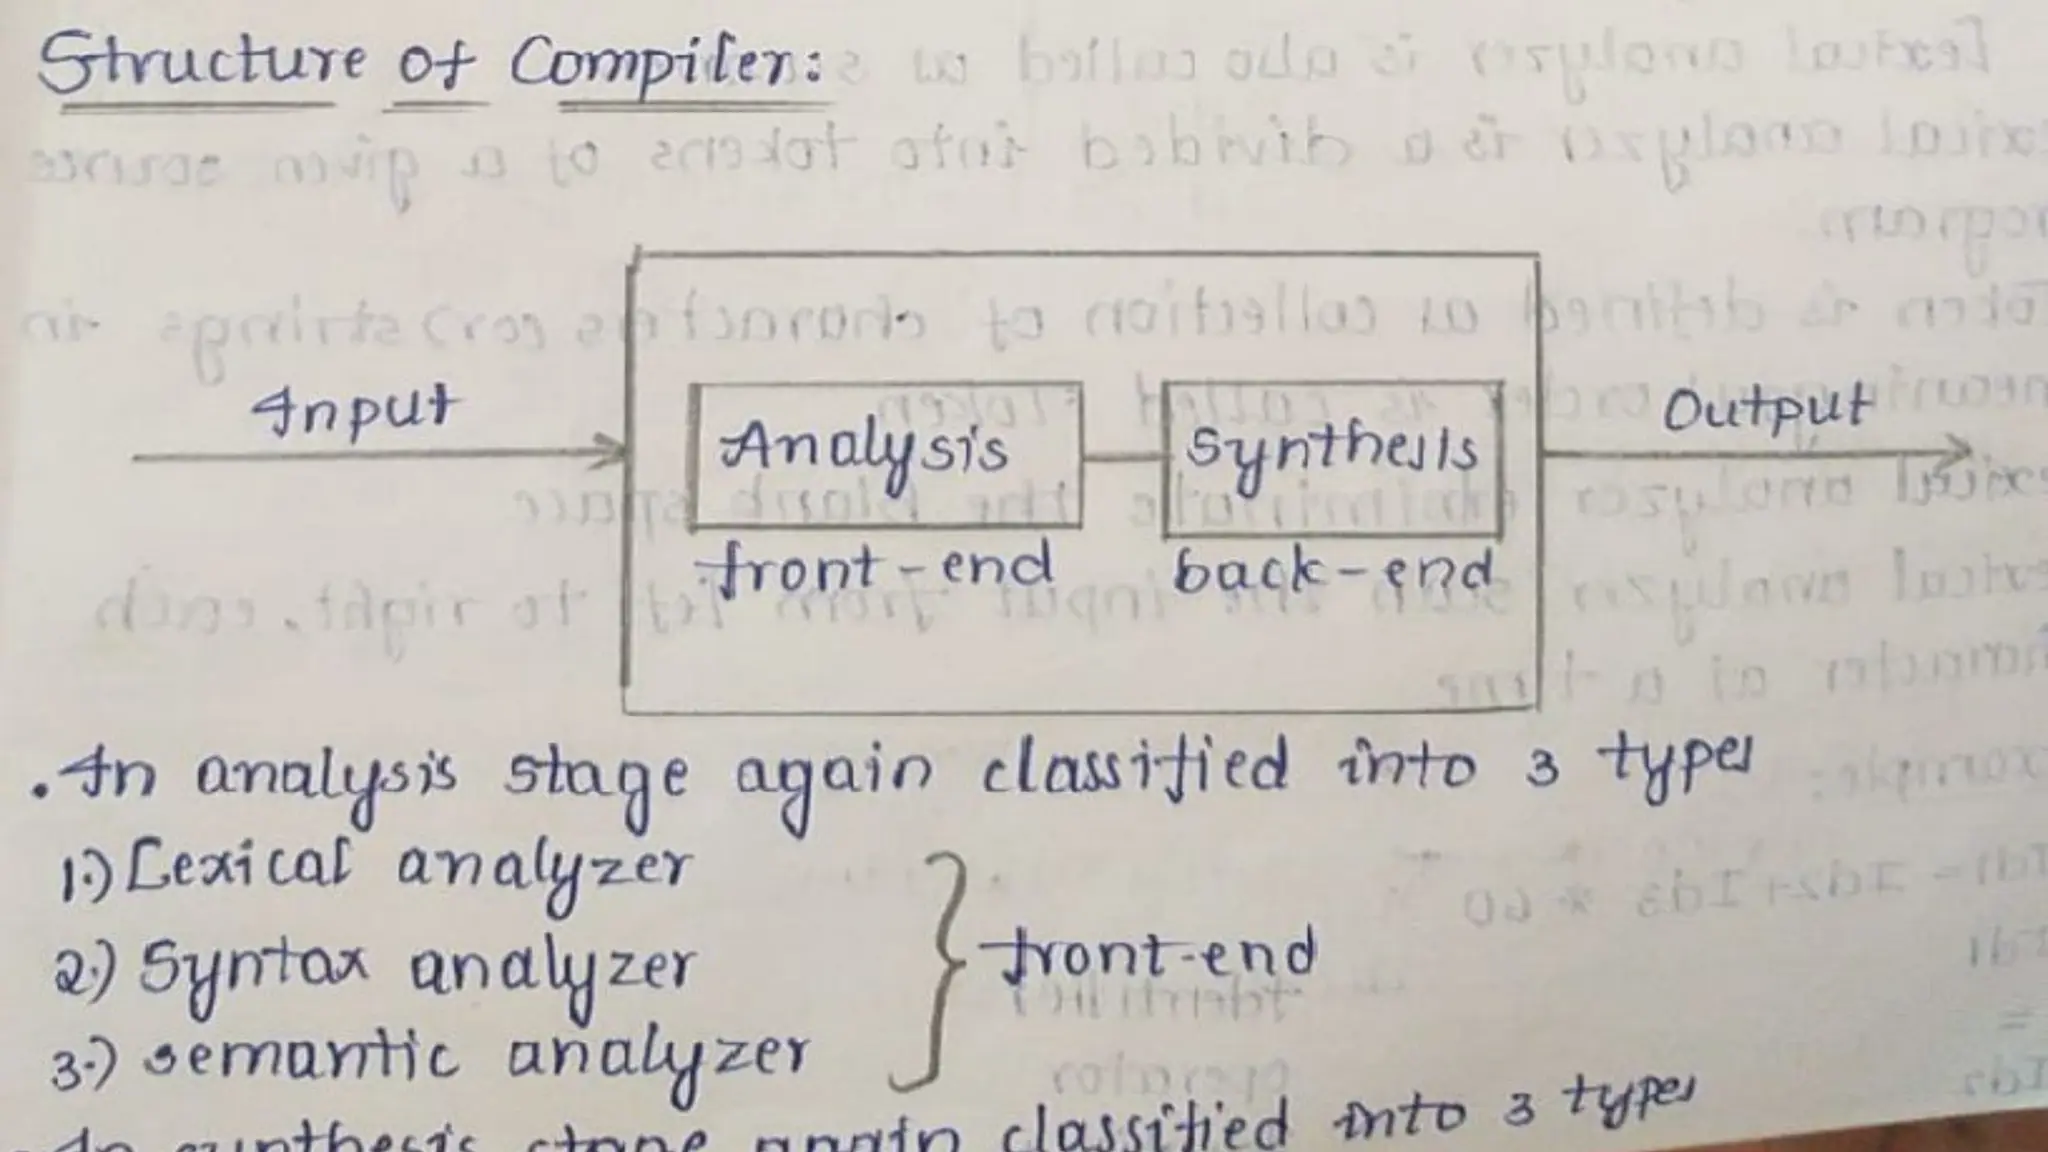 Structure of Compiler:
Input
Analysis
Synthesis
Output
front-end
back-end
. In analysis stage again classified into 3 types
1.) Lexical analyzer
2.) Syntax analyzer
front-end
3.) semantic analyzer
. In synthesis stage again classified into 3 types